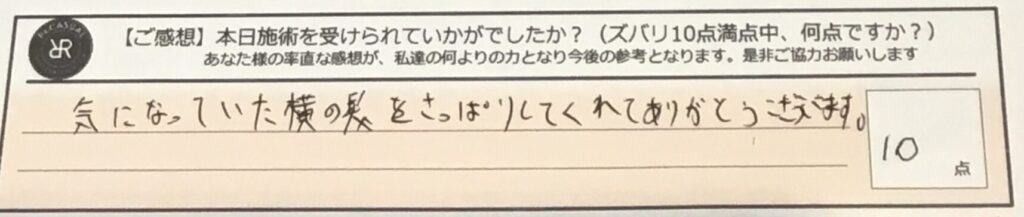 【ご感想】本日施術を受けられていかがでしたか？（ズバリ10点満点中、何点ですか？）
あなた様の率直な感想が、私達の何よりの力となり今後の参考となります。是非ご協力お願いします
気になっていた横の髪をさっぱりしてくれてありがとうございます。
10点